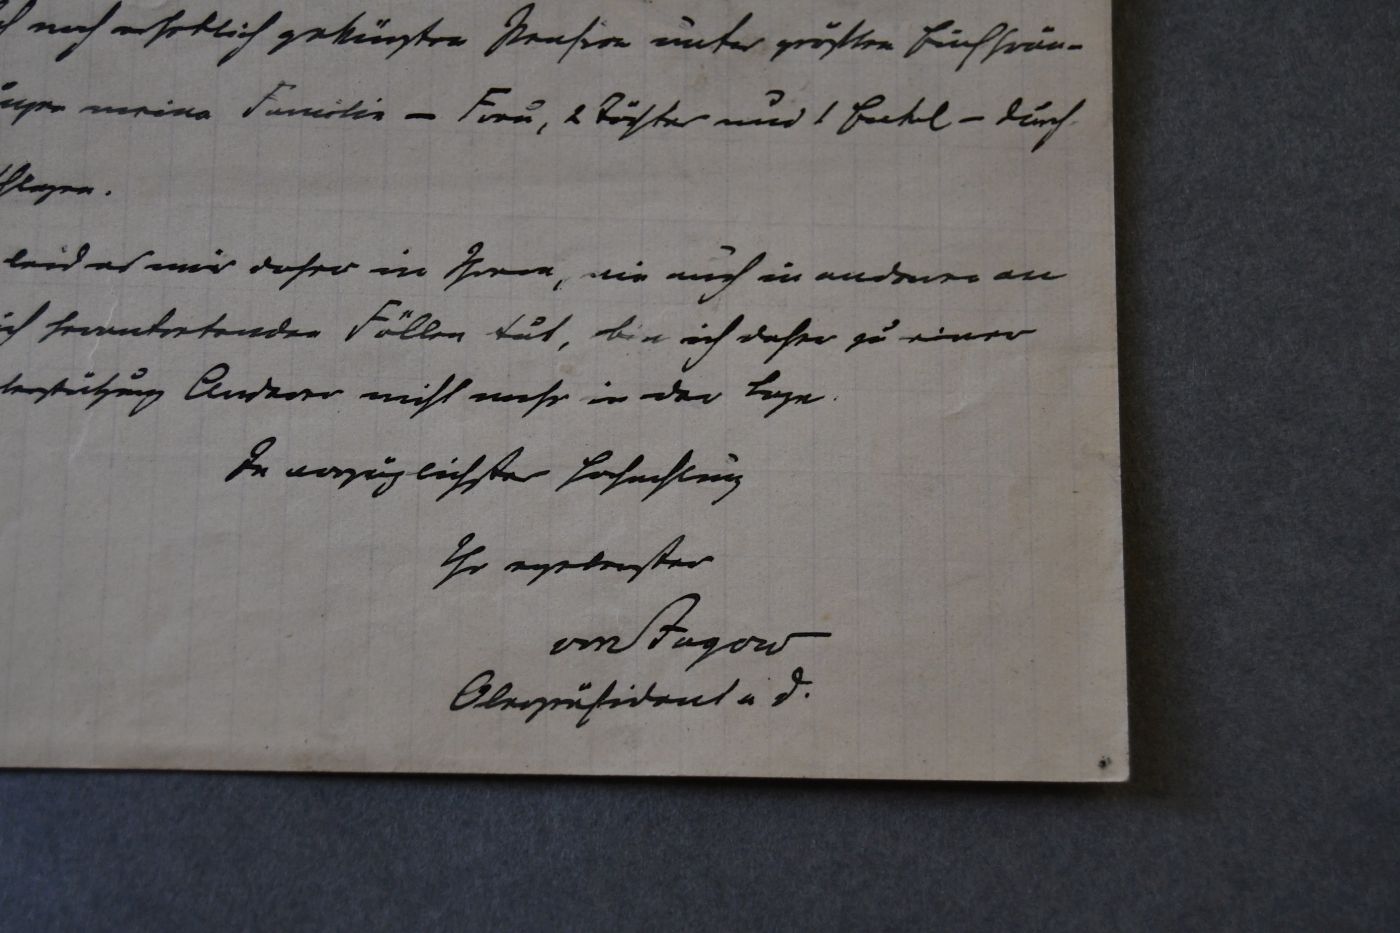 noch erheblich gekürzten Pension unter größten Einschrän-
meine Familie – Frau, 2 Töchter und 1 Enkel – durch-
schlagen.
leid es mir daher in Ihrem, wie auch in anderen an
ich herantretenden Fällen tut, bin ich daher zu einer
terstützung Anderer nicht mehr in der Lage.
In vorzüglichster Hochachtung
Ihr ergebenster
von Jagow
Oberpräsident a. D.